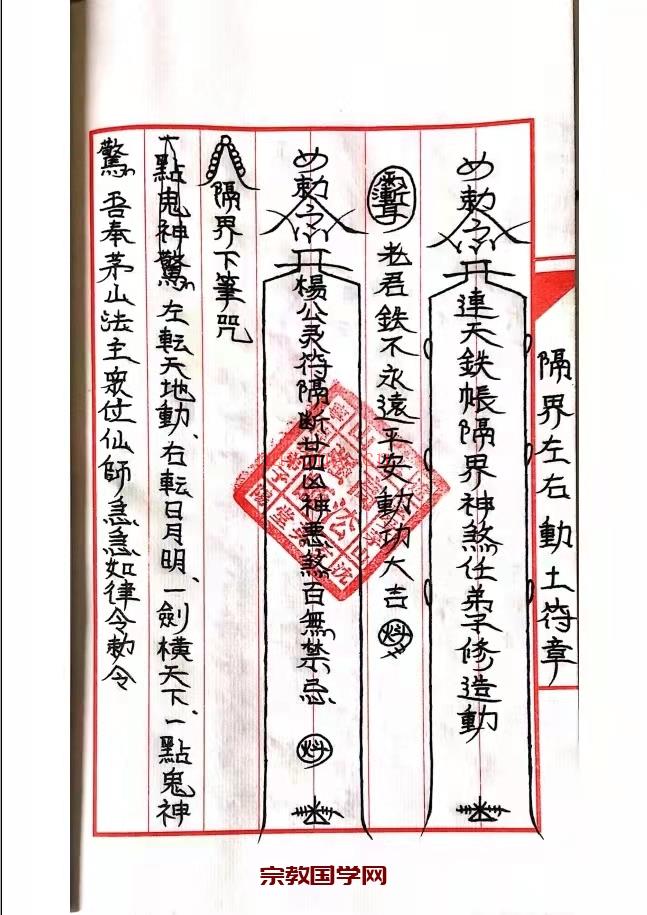 隔界左右動土符章
勅令
連天鉄帳隔界神煞任弟子修造動
老君鉄不永遠平安動功大吉
勅令
楊公灵符隔断廿四凶神悪煞百無禁忌
隔界下筆咒
一點鬼神驚左転天地動、右転日月明、一劍橫天下、一點鬼神
驚吾奉茅山法主衆仙師急急如律令勅令
宗教国学网